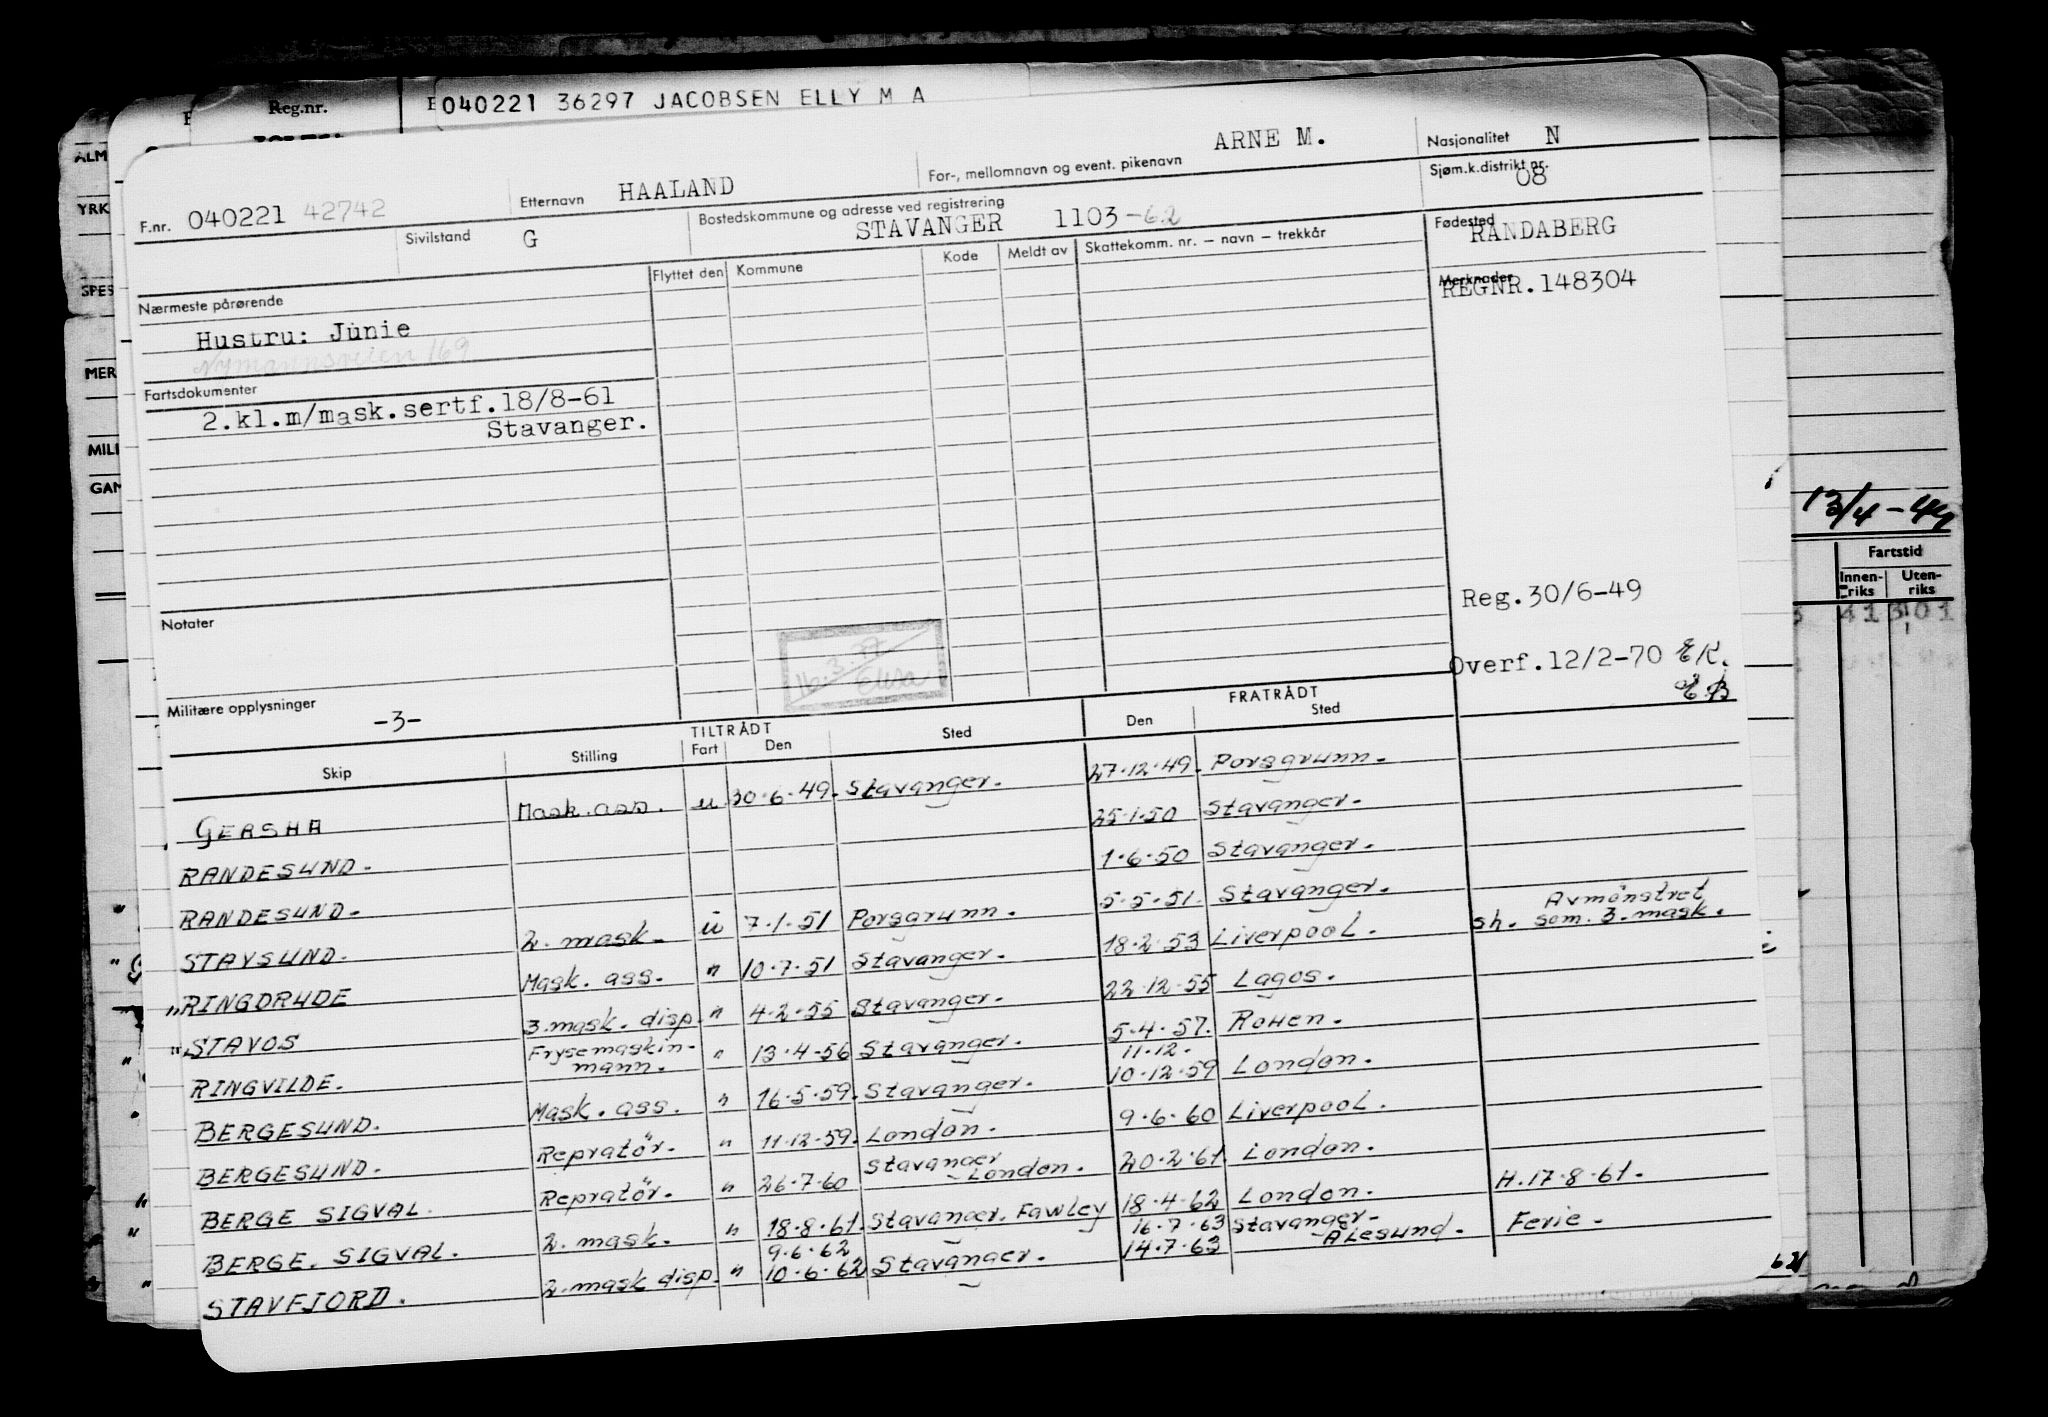 Reg.nr.
040221 36297 JACOBSEN ELLY M A
ALM
YRK
SPES
MER
MILI
GAN
F.nr. 040221 42742
Etternavn HAALAND
For-, mellomnavn og event. pikenavn ARNE M.
Nasjonalitet N
Sjøm.k.distrikt nr. 08
Sivilstand G
Bostedskommune og adresse ved registrering
STAVANGER 1103-62
Fødested RANDABERG
Nærmeste pårørende
Flyttet den Kommune Kode Meldt av Skattekomm. nr. – navn – trekkår
Merknader
REGNR.148304
Hustru: Junie
Nymannsveien 169
Fartsdokumenter
2.kl.m/mask.sertf.18/8-61
Stavanger.
13/4-44
Fartstid
Innen-riks Uten-riks
Reg.30/6-49
Notater
16.3.77
Elisa
Overf.12/2-70 EK.
E.B
Militære opplysninger -3-
TILTRÅDT FRATRÅDT
Skip Stilling Fart Den Sted Den Sted
GERSHA Mask.ass. u 30.6.49. Stavanger. 27.12.49. Porsgrunn.
RANDESUND. 25.1.50 Stavanger.
RANDESUND. 1.6.50 Stavanger.
STAVSUND. 2. mask. u 7.1.51 Porsgrunn. 5.5.51. Stavanger. Avmønstret
sh. som. 3. mask.
" RINGDRUDE Mask. ass. " 10.7.51 Stavanger. 18.2.53 Liverpool.
" STAVOS 3.mask. disp. " 4.2.55 Stavanger. 22.12.55 Lagos.
RINGVILDE. Frysemaskin-
mann. " 13.4.56 Stavanger. 5.4.57. Rouen.
BERGESUND. Mask. ass. " 16.5.59. Stavanger. 11.12.
10.12.59 London.
BERGESUND. Repratør. " 11.12.59. London. 9.6.60 Liverpool.
BERGE SIGVAL. Repratør. " 26.7.60 Stavanger
London. 20.2.61. London.
BERGE. SIGVAL. 2. mask. " 18.8.61. Stavanger. Fawley 18.4.62 London. H.17.8.61.
STAVFJORD. 2.mask disp. " 9.6.62
10.6.62 Stavanger. 16.7.63
14.7.63 Stavanger-
Ålesund. Ferie.